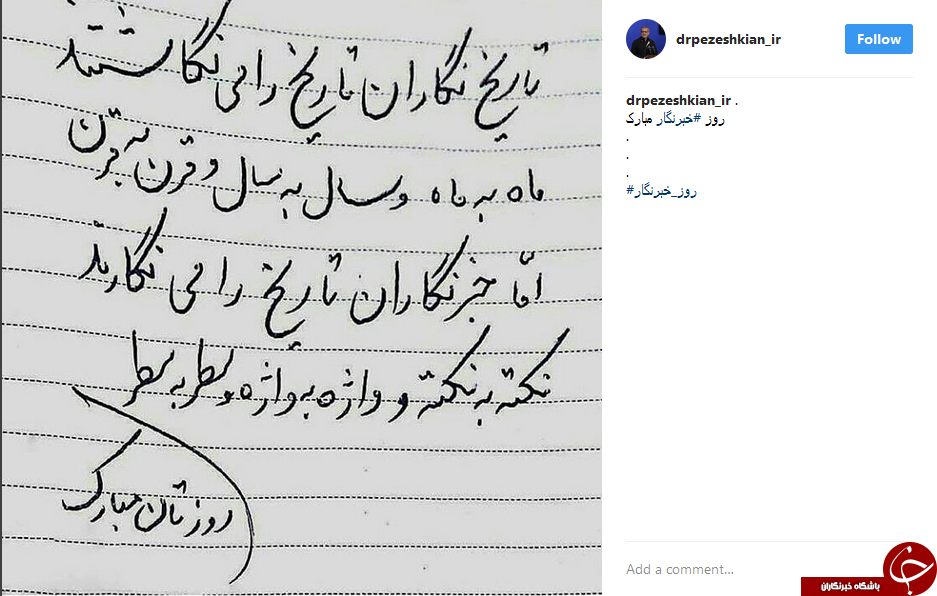 تاریخ نگاران تاریخ را می نگاشتند
ماه به ماه و سال به سال و قرن به قرن
امّا خبرنگاران تاریخ را می نگارند
نکته به نکته و واژه به واژه و سطر به سطر
روزتان مبارک
drpezeshkian_ir
Follow
drpezeshkian_ir .
روز #خبرنگار مبارک
.
.
.
#روز_خبرنگار
Add a comment...
باشگاه خبرنگاران